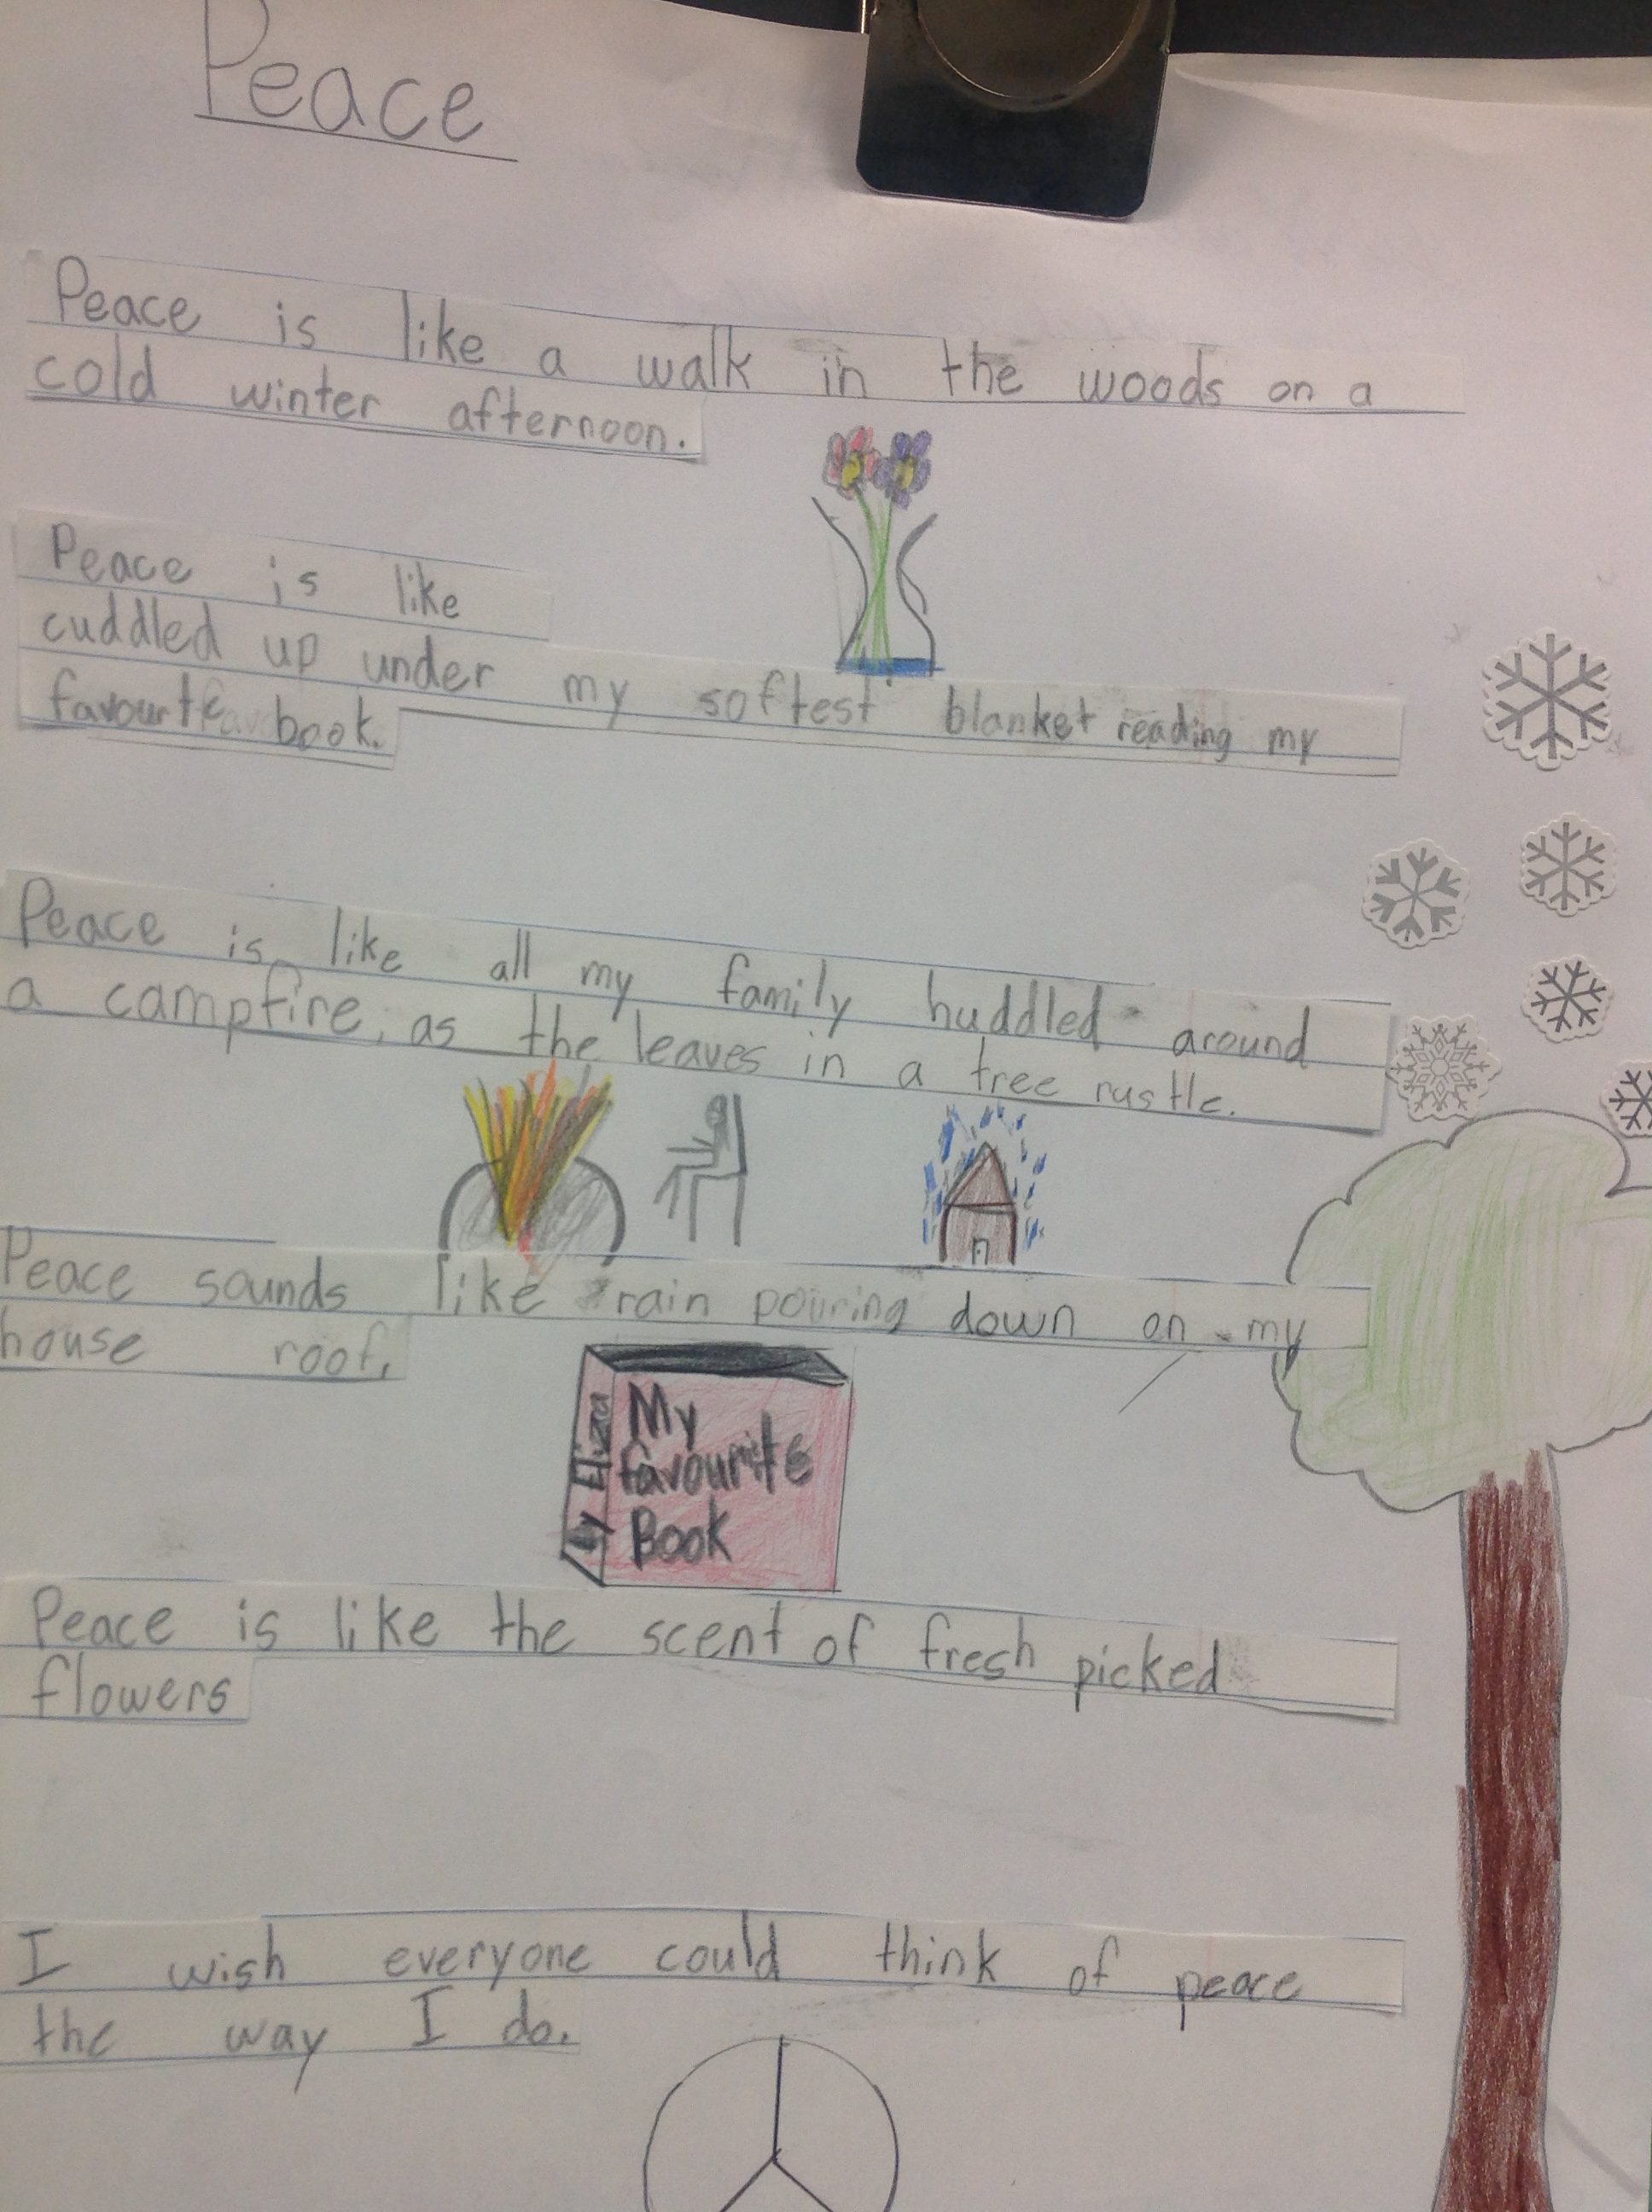 Peace
Peace is like a walk in the woods on a
cold winter afternoon.
Peace is like
cuddled up under my softest blanket reading my
favourte book.
Peace is like all my family huddled around
a campfire, as the leaves in a tree rustle.
Peace sounds like rain pouring down on my
house roof.
My
favourite
Book
by Eliza
Peace is like the scent of fresh picked
flowers
I wish everyone could think of peace
the way I do.